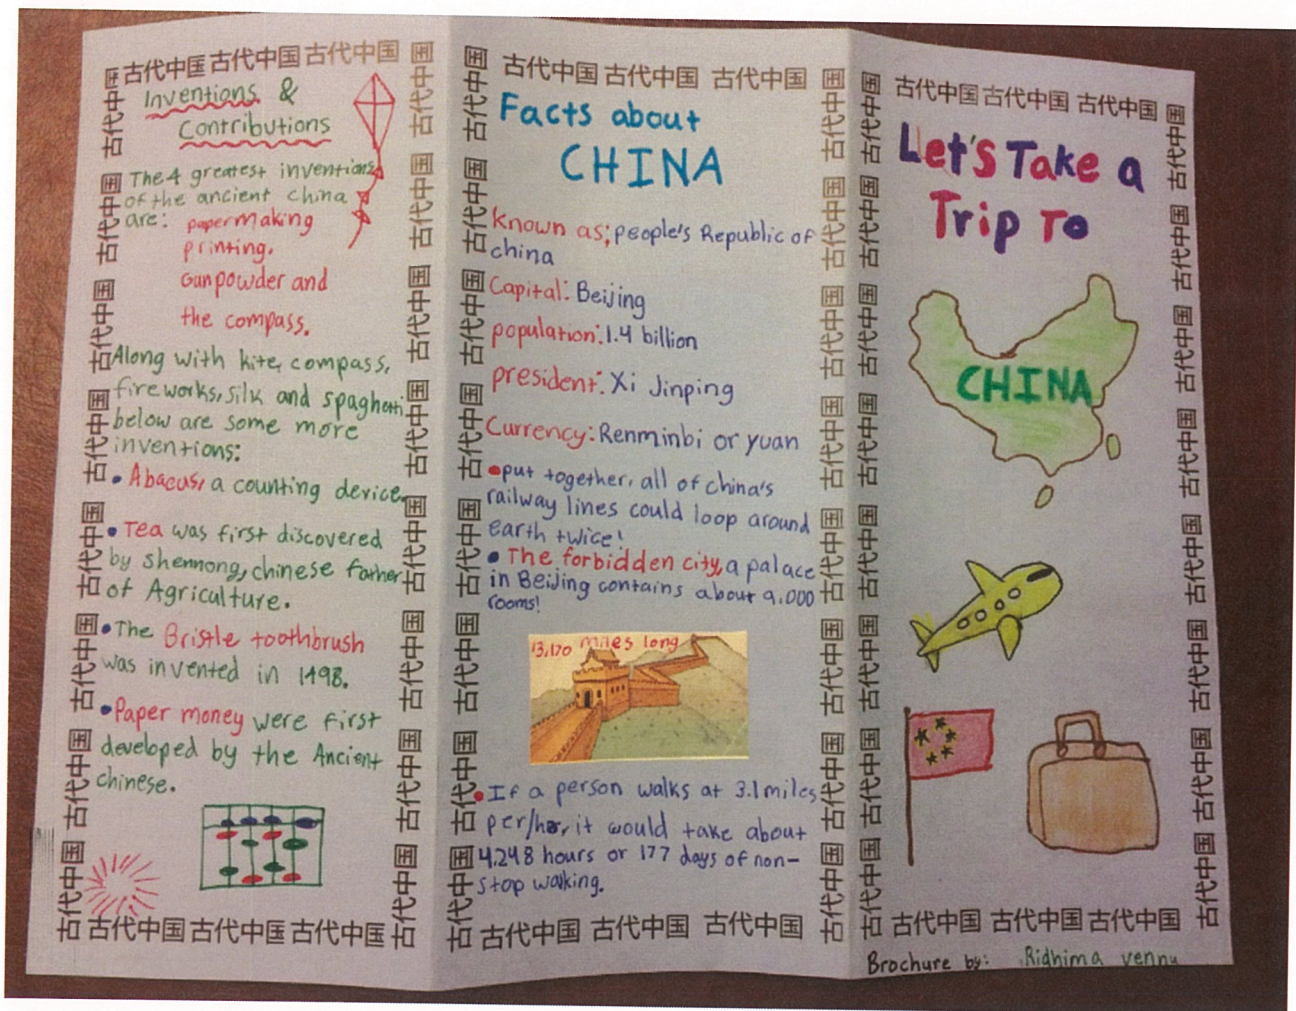 古代中国 古代中国 古代中国
Inventions &
Contributions
The 4 greatest inventions
of the ancient china
are: papermaking
printing.
Gunpowder and
the compass.
Along with kite, compass,
fireworks, silk and spaghetti
below are some more
inventions:
• Abacus, a counting device.
• Tea was first discovered
by shennong, chinese father
of Agriculture.
• The Bristle toothbrush
was invented in 1498.
• Paper money were first
developed by the Ancient
chinese.
古代中国 古代中国 古代中国
古代中国 古代中国 古代中国
Facts about
CHINA
Known as; people's Republic of
china
Capital: Beijing
population: 1.4 billion
president: Xi Jinping
Currency: Renminbi or yuan
• put together, all of china's
railway lines could loop around
earth twice!
• The forbidden city, a palace
in Beijing contains about 9,000
rooms!
13,170 miles long
• If a person walks at 3.1 miles
per/hr, it would take about
4,248 hours or 177 days of non-
stop walking.
古代中国 古代中国 古代中国
古代中国 古代中国 古代中国
Let's Take a
Trip To
CHINA
古代中国 古代中国 古代中国
Brochure by: Ridhima vennu
古代中国 古代中国 古代中国 古代中国 古代中国 古代中国 古代中国 古代中国
古代中国 古代中国 古代中国 古代中国 古代中国 古代中国 古代中国 古代中国
古代中国 古代中国 古代中国 古代中国 古代中国 古代中国 古代中国 古代中国
古代中国 古代中国 古代中国 古代中国 古代中国 古代中国 古代中国 古代中国
古代中国 古代中国 古代中国 古代中国 古代中国 古代中国 古代中国 古代中国
古代中国 古代中国 古代中国 古代中国 古代中国 古代中国 古代中国 古代中国